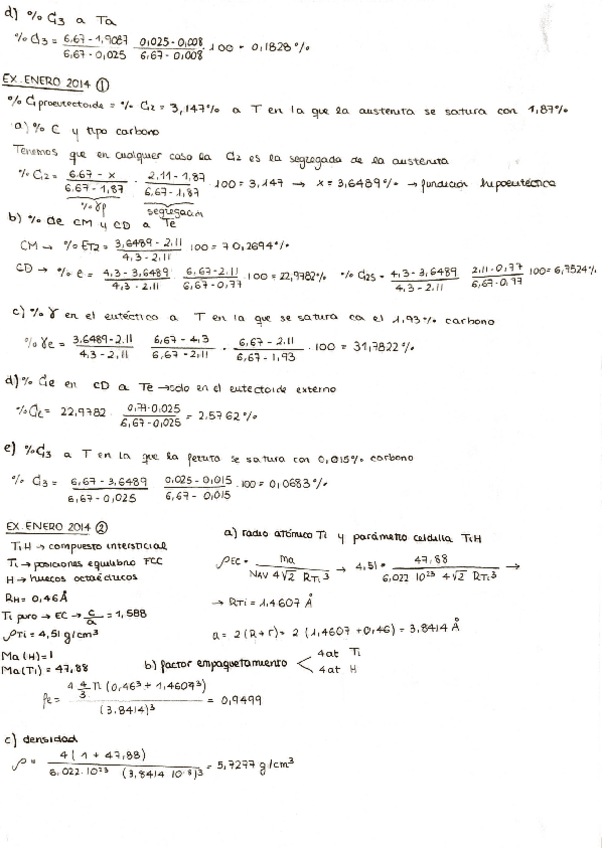 d) % C3 a Ta
% C3 = 6,67 - 1,9087 / 6,67 - 0,025 · 0,025 - 0,008 / 6,67 - 0,008 · 100 = 0,1828 %
EX. ENERO 2014 ①
% C proeutectoide = % C2 = 3,147% a T en la que la austenita se satura con 1,87%
a) % C y tipo carbono
Tenemos que en cualquier caso la C2 es la segregada de la austenita
% C2 = 6,67 - x / 6,67 - 1,87 · 2,11 - 1,87 / 6,67 - 1,87 · 100 = 3,147 → x = 3,6489 % → fundición hipoeutéctica
% γp segregación
b) % de CM y CD a Te
CM → % ET2 = 3,6489 - 2,11 / 4,3 - 2,11 · 100 = 70,2694 %
CD → % e = 4,3 - 3,6489 / 4,3 - 2,11 · 6,67 - 2,11 / 6,67 - 0,77 · 100 = 22,9782 % % C2s = 4,3 - 3,6489 / 4,3 - 2,11 · 2,11 - 0,77 / 6,67 - 0,77 · 100 = 6,7524 %
c) % γ en el eutéctico a T en la que se satura ca el 1,93 % carbono
% γe = 3,6489 - 2,11 / 4,3 - 2,11 · 6,67 - 4,3 / 6,67 - 2,11 · 6,67 - 2,11 / 6,67 - 1,93 · 100 = 31,7822 %
d) % Ce en CD a Te → solo en el eutectoide externo
% Ce = 22,9782 · 0,77 - 0,025 / 6,67 - 0,025 = 2,5762 %
e) % C3 a T en la que la ferrita se satura con 0,015% carbono
% C3 = 6,67 - 3,6489 / 6,67 - 0,025 · 0,025 - 0,015 / 6,67 - 0,015 · 100 = 0,0683 %
EX. ENERO 2014 ②
TiH → compuesto intersticial
Ti → posiciones equilibrio FCC
H → huecos octaédricos
RH = 0,46 Å
Ti puro → EC → c/a = 1,588
ρTi = 4,51 g/cm³
Ma (H) = 1
Ma (Ti) = 47,88
a) radio atómico Ti y parámetro celdilla TiH
ρEC = Ma / NAV 4√2 RTi³ → 4,51 = 47,88 / 6,022 10²³ 4√2 RTi³ →
→ RTi = 1,4607 Å
a = 2 (R + r) = 2 (1,4607 + 0,46) = 3,8414 Å
b) factor empaquetamiento
4 at Ti
4 at H
fe = 4 4/3 π (0,46³ + 1,4607³) / (3,8414)³ = 0,9499
c) densidad
ρ = 4 (1 + 47,88) / 6,022 · 10²³ (3,8414 10⁻⁸)³ = 5,7277 g/cm³